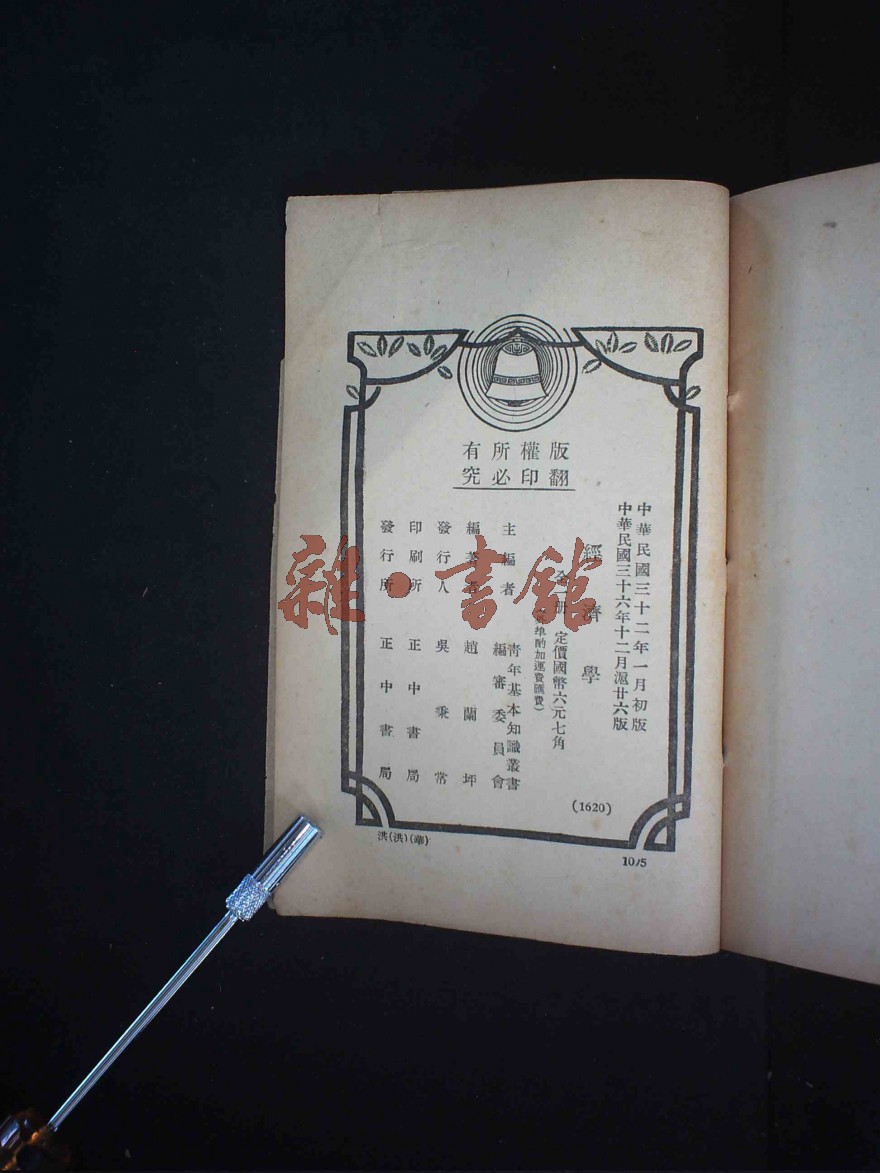 版權所有
翻印必究
中華民國三十二年一月初版
中華民國三十六年十二月滬廿六版
經濟學
全一冊 定價國幣六元七角
(外埠酌加運費匯費)
主編者 青年基本知識叢書
編審委員會
編著者 趙蘭坪
發行人 吳秉常
印刷所 正中書局
發行所 正中書局
(1620)
洪(洪)(華)
10/5
雜·書館